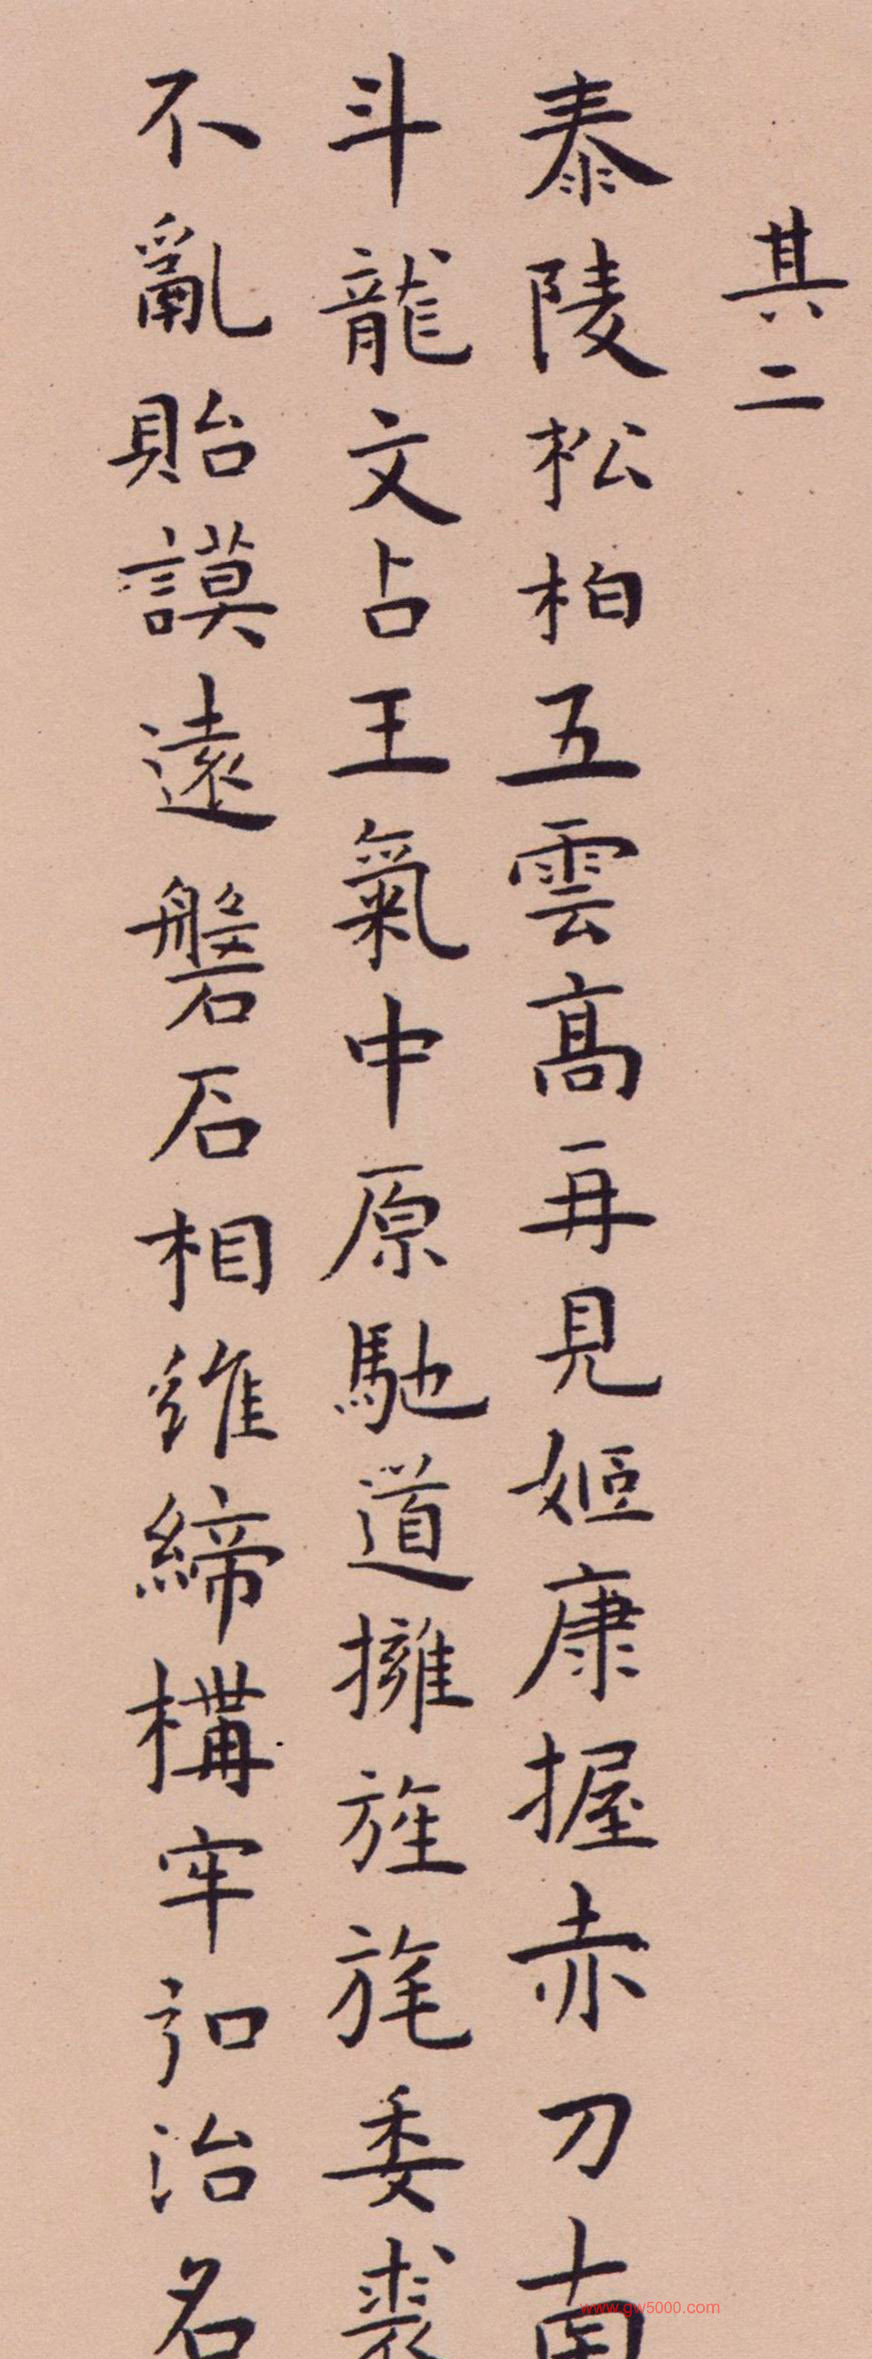 其二
泰陵松柏五雲高再見姬康握赤刀南
斗龍文占王氣中原馳道擁旌旄委裘
不亂貽謨遠磐石相維締構牢弘治名
www.gw5000.com